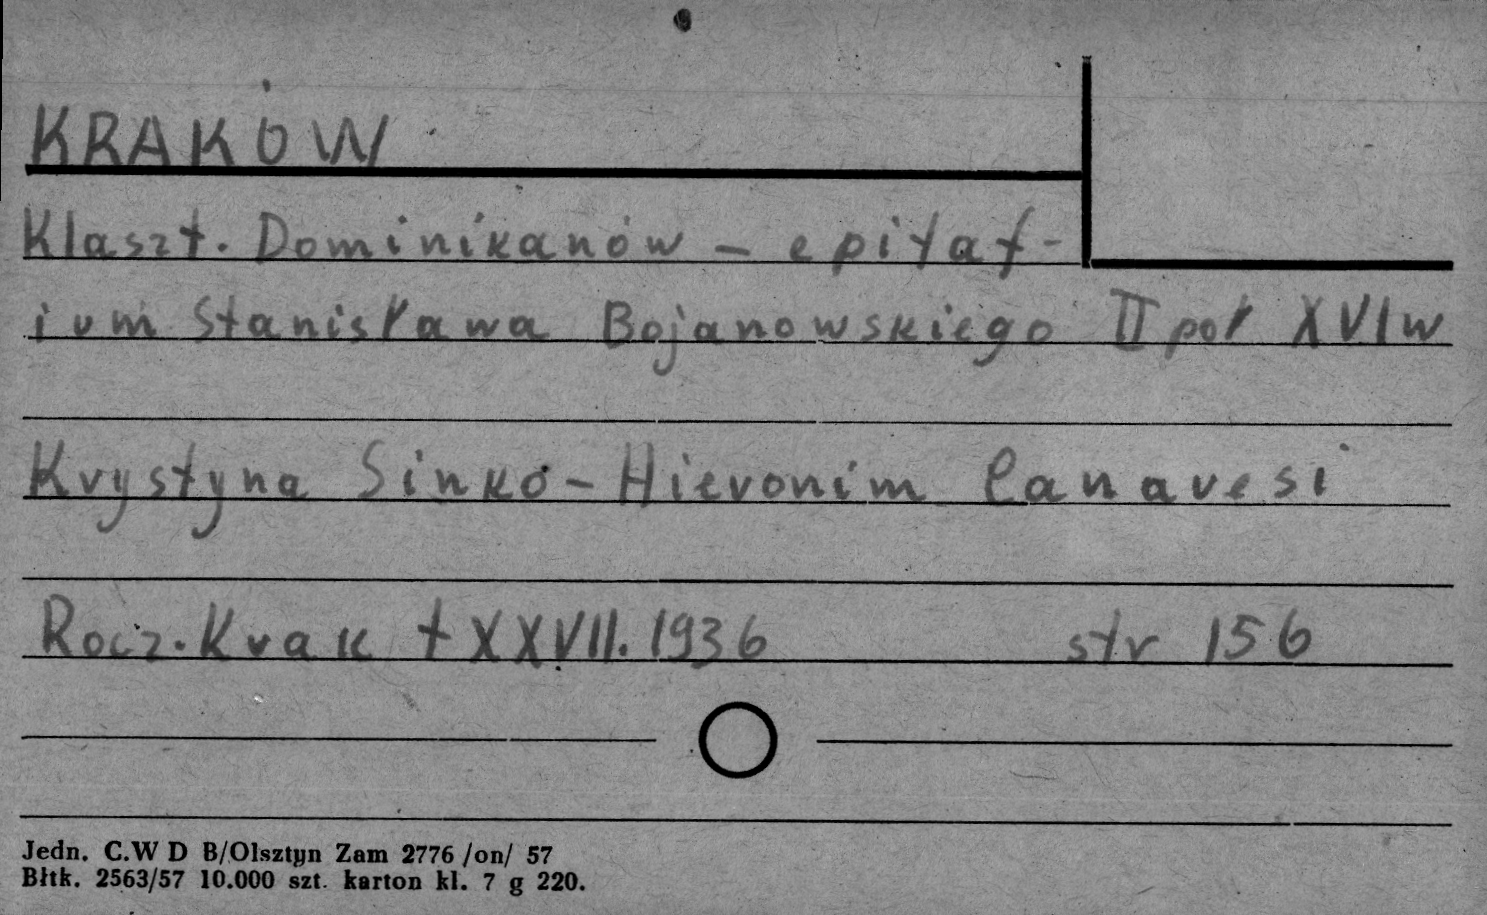 KRAKÓW
Klaszt. Dominikanów – epitaf-
ium Stanisława Bojanowskiego II poł XVI w
Krystyna Sinko – Hieronim Canavesi
Rocz. Krak t XXVII. 1936 str 156
Jedn. C.W D B/Olsztyn Zam 2776 /on/ 57
Błtk. 2563/57 10.000 szt. karton kl. 7 g 220.